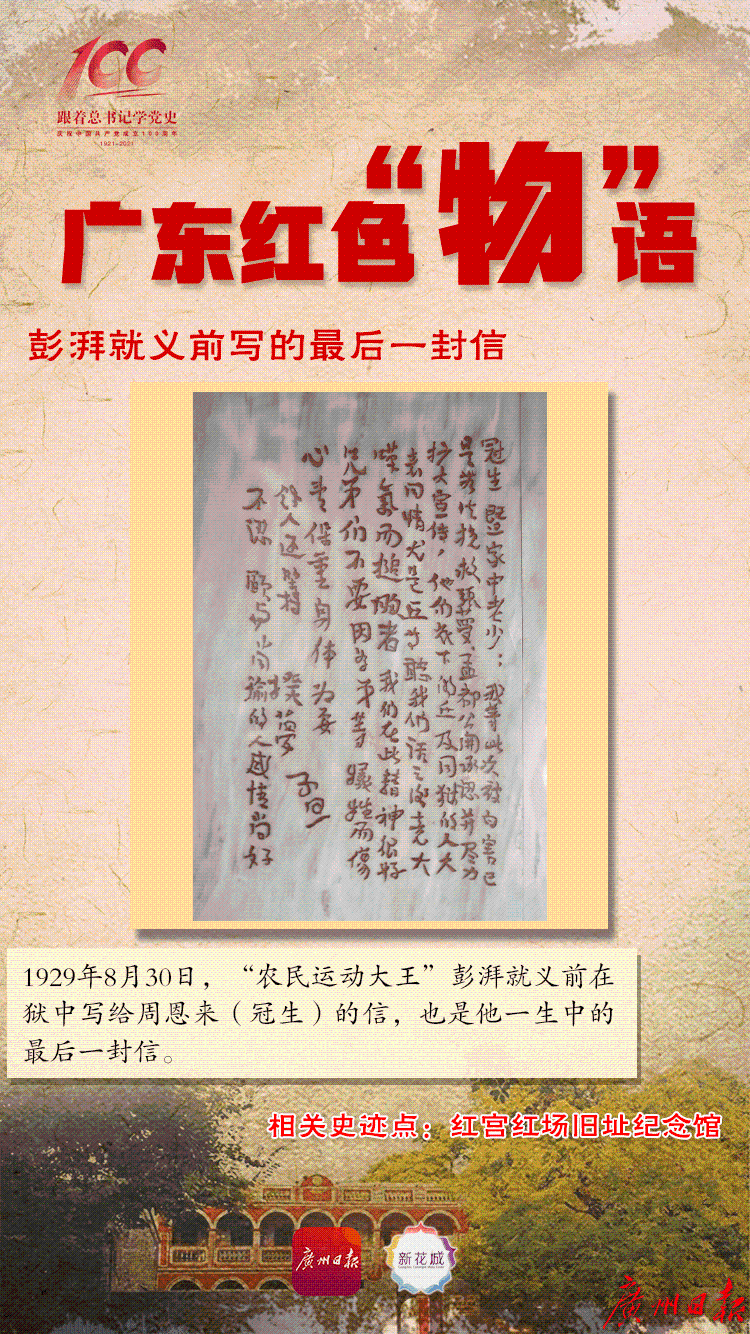 100
跟着总书记学党史
庆祝中国共产党成立100周年
1921-2021
广东红色“物”语
彭湃就义前写的最后一封信
冠生暨家中老少：我等此次被白害已
是无法挽救 梦、孟都公开承认并尽力
扩大宣传，他们底下的丘及同狱的人大
表同情尤是丘等听我们话之后竟大
嘆氣而搥胸者我们在此精神很好
兄弟们不要因为弟等牺牲而傷
心 保重身体为要 子旦
余人还坚持 揆梦
不認 颐与尚瑜的人感情尚好
1929年8月30日，“农民运动大王”彭湃就义前在
狱中写给周恩来（冠生）的信，也是他一生中的
最后一封信。
相关史迹点：红宫红场旧址纪念馆
廣州日報
新花城
廣州日報